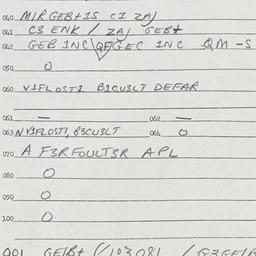 040 M/R GEB+1S CI ZAJ
041 C3 ENK / ZAJ GEB+
042 GEB INC QF/GEC INC QM-S
050 O
060 V1FLOST1 B1CU3LT DEFAR
061 — 062 —
063 NV3FLOST1, B3CU3LT 064 O
070 A F3RFOULT3R APL
080 O
090 O
100 O
001 GEIB+ (/103081 / G3GEIB